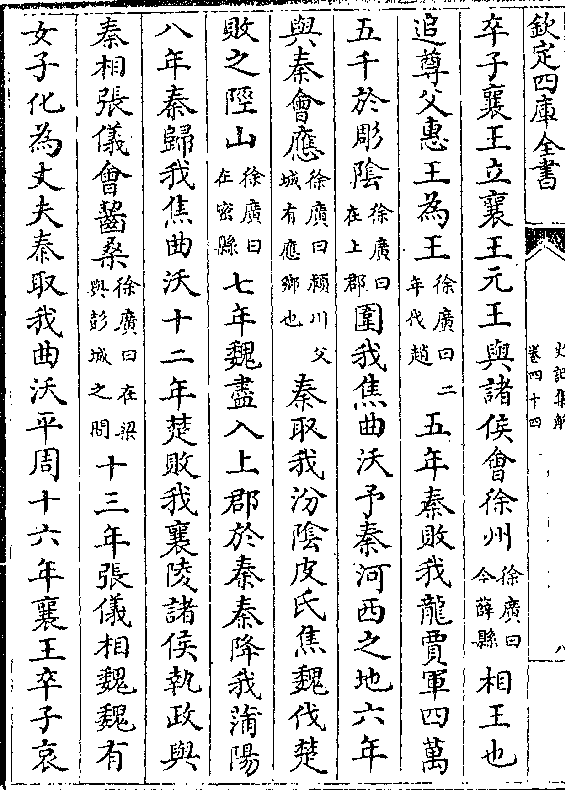 欽定四庫全書
史記集解
卷四十四
八
卒子襄王立襄王元王與諸侯會徐州徐廣曰今薛縣相王也
追尊父惠王為王徐廣曰二年代趙五年秦敗我龍賈軍四萬
五千於彫陰徐廣曰在上郡圍我焦曲沃予秦河西之地六年
與秦會應徐廣曰潁川父城有應鄉也秦取我汾陰皮氏焦魏伐楚
敗之陘山徐廣曰在密縣七年魏盡入上郡於秦秦降我蒲陽
八年秦歸我焦曲沃十二年楚敗我襄陵諸侯執政與
秦相張儀會齧桑徐廣曰在梁與彭城之間十三年張儀相魏魏有
女子化為丈夫秦取我曲沃平周十六年襄王卒子哀